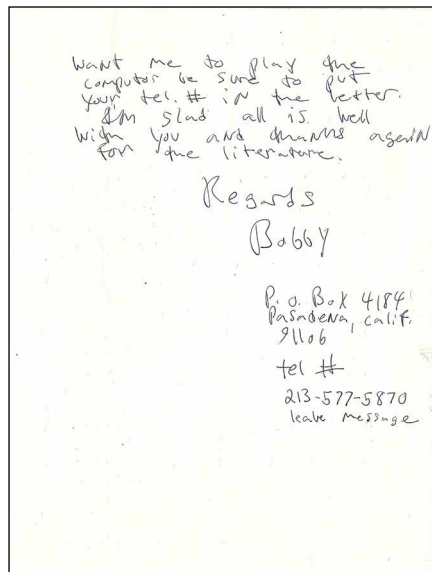 want me to play the
computor be sure to put
your tel. # in the letter.
I'm glad all is well
with you and thanks again
for the literature.
Regards
Bobby
P.O. Box 4184
Pasadena, Calif.
91106
tel #
213-577-5870
leave message